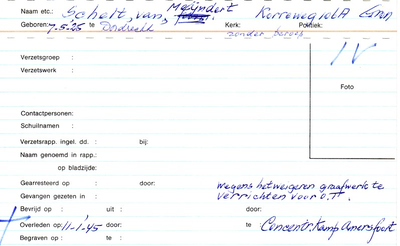 Naam etc.: Schelt, van, Meijndert Korreweg 101A Gron
Geboren: 7-5-'25 te Dordrecht Kerk: Politiek:
zonder beroep
Verzetsgroep :
Verzetswerk :
Foto
Contactpersonen:
Schuilnamen :
Verzetsrapp. ingel. dd. : bij:
Naam genoemd in rapp.:
op bladzijde:
Gearresteerd op : door: wegens het weigeren graafwerk te
Gevangen gezeten in : verrichten voor O.T.
Bevrijd op : uit : door:
Overleden op: 11-1-45 door: te Concentr. Kamp Amersfoort
Begraven op : te :